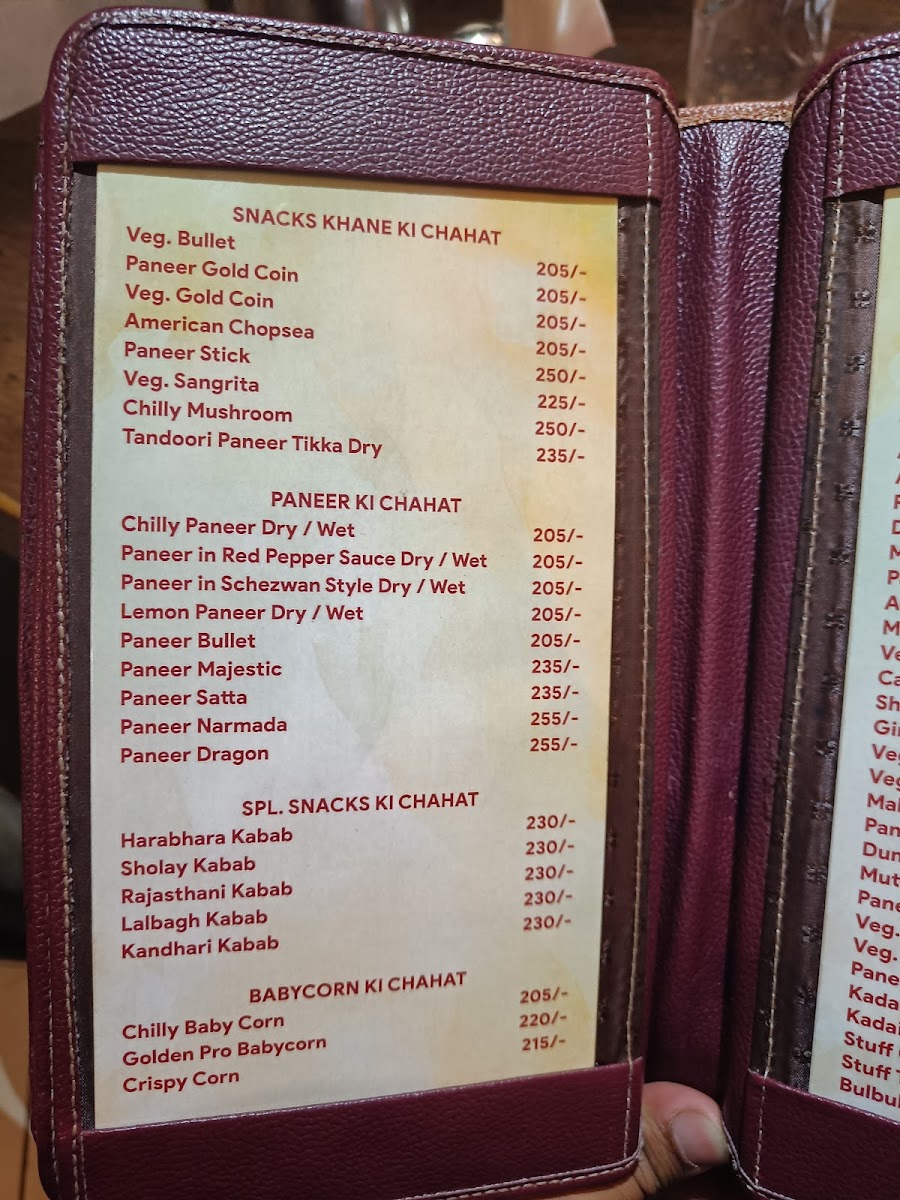 SNACKS KHANE KI CHAHAT
Veg. Bullet 205/-
Paneer Gold Coin 205/-
Veg. Gold Coin 205/-
American Chopsea 205/-
Paneer Stick 250/-
Veg. Sangrita 225/-
Chilly Mushroom 250/-
Tandoori Paneer Tikka Dry 235/-
PANEER KI CHAHAT
Chilly Paneer Dry / Wet 205/-
Paneer in Red Pepper Sauce Dry / Wet 205/-
Paneer in Schezwan Style Dry / Wet 205/-
Lemon Paneer Dry / Wet 205/-
Paneer Bullet 205/-
Paneer Majestic 235/-
Paneer Satta 235/-
Paneer Narmada 255/-
Paneer Dragon 255/-
SPL. SNACKS KI CHAHAT
Harabhara Kabab 230/-
Sholay Kabab 230/-
Rajasthani Kabab 230/-
Lalbagh Kabab 230/-
Kandhari Kabab 230/-
BABYCORN KI CHAHAT
Chilly Baby Corn 205/-
Golden Pro Babycorn 220/-
Crispy Corn 215/-
Veg.
Veg.
Stuff
Stuff